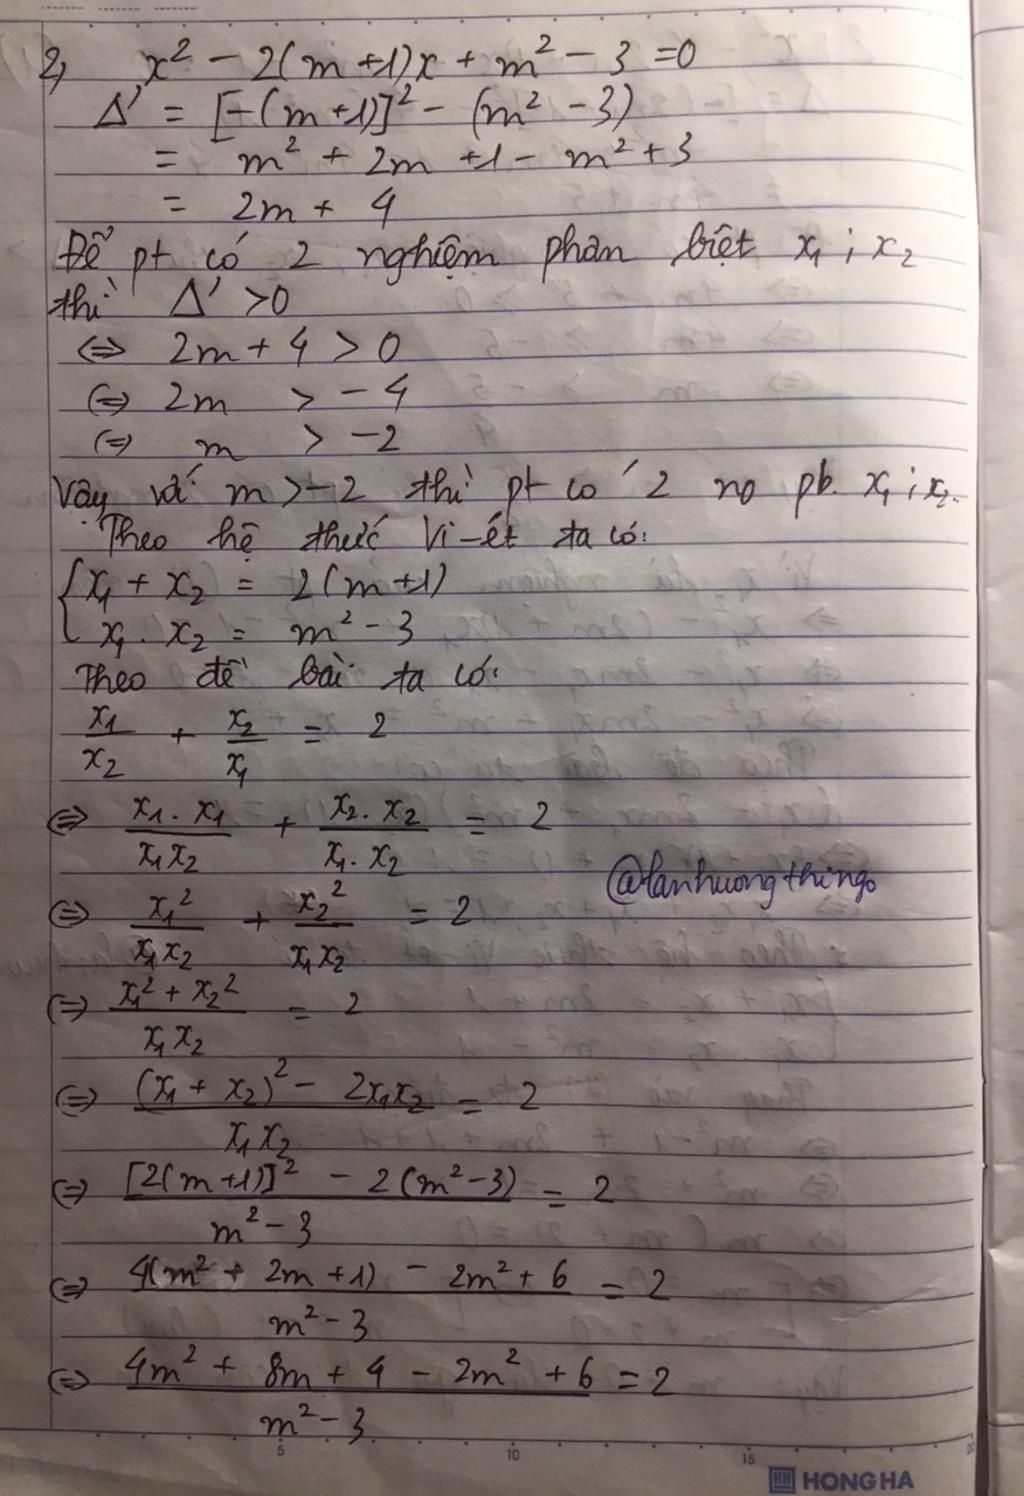 2, x² - 2(m+1)x + m² - 3 = 0
Δ' = [-(m+1)]² - (m² - 3)
= m² + 2m + 1 - m² + 3
= 2m + 4
Để pt có 2 nghiệm phân biệt x₁ ; x₂
thì Δ' > 0
⇔ 2m + 4 > 0
⇔ 2m > -4
⇔ m > -2
Vậy với m > -2 thì pt có 2 no pb x₁ ; x₂.
Theo hệ thức Vi-ét ta có:
{ x₁ + x₂ = 2(m+1)
x₁ . x₂ = m² - 3
Theo đề bài ta có:
x₁/x₂ + x₂/x₁ = 2
⇔ x₁.x₁/x₁x₂ + x₂.x₂/x₁.x₂ = 2
@lanhuongthingo
⇔ x₁²/x₁x₂ + x₂²/x₁x₂ = 2
⇔ (x₁² + x₂²)/x₁x₂ = 2
⇔ ((x₁ + x₂)² - 2x₁x₂)/x₁x₂ = 2
⇔ ([2(m+1)]² - 2(m² - 3))/(m² - 3) = 2
⇔ (4(m² + 2m + 1) - 2m² + 6)/(m² - 3) = 2
⇔ (4m² + 8m + 4 - 2m² + 6)/(m² - 3) = 2
5 10 15 20
HH HONG HA